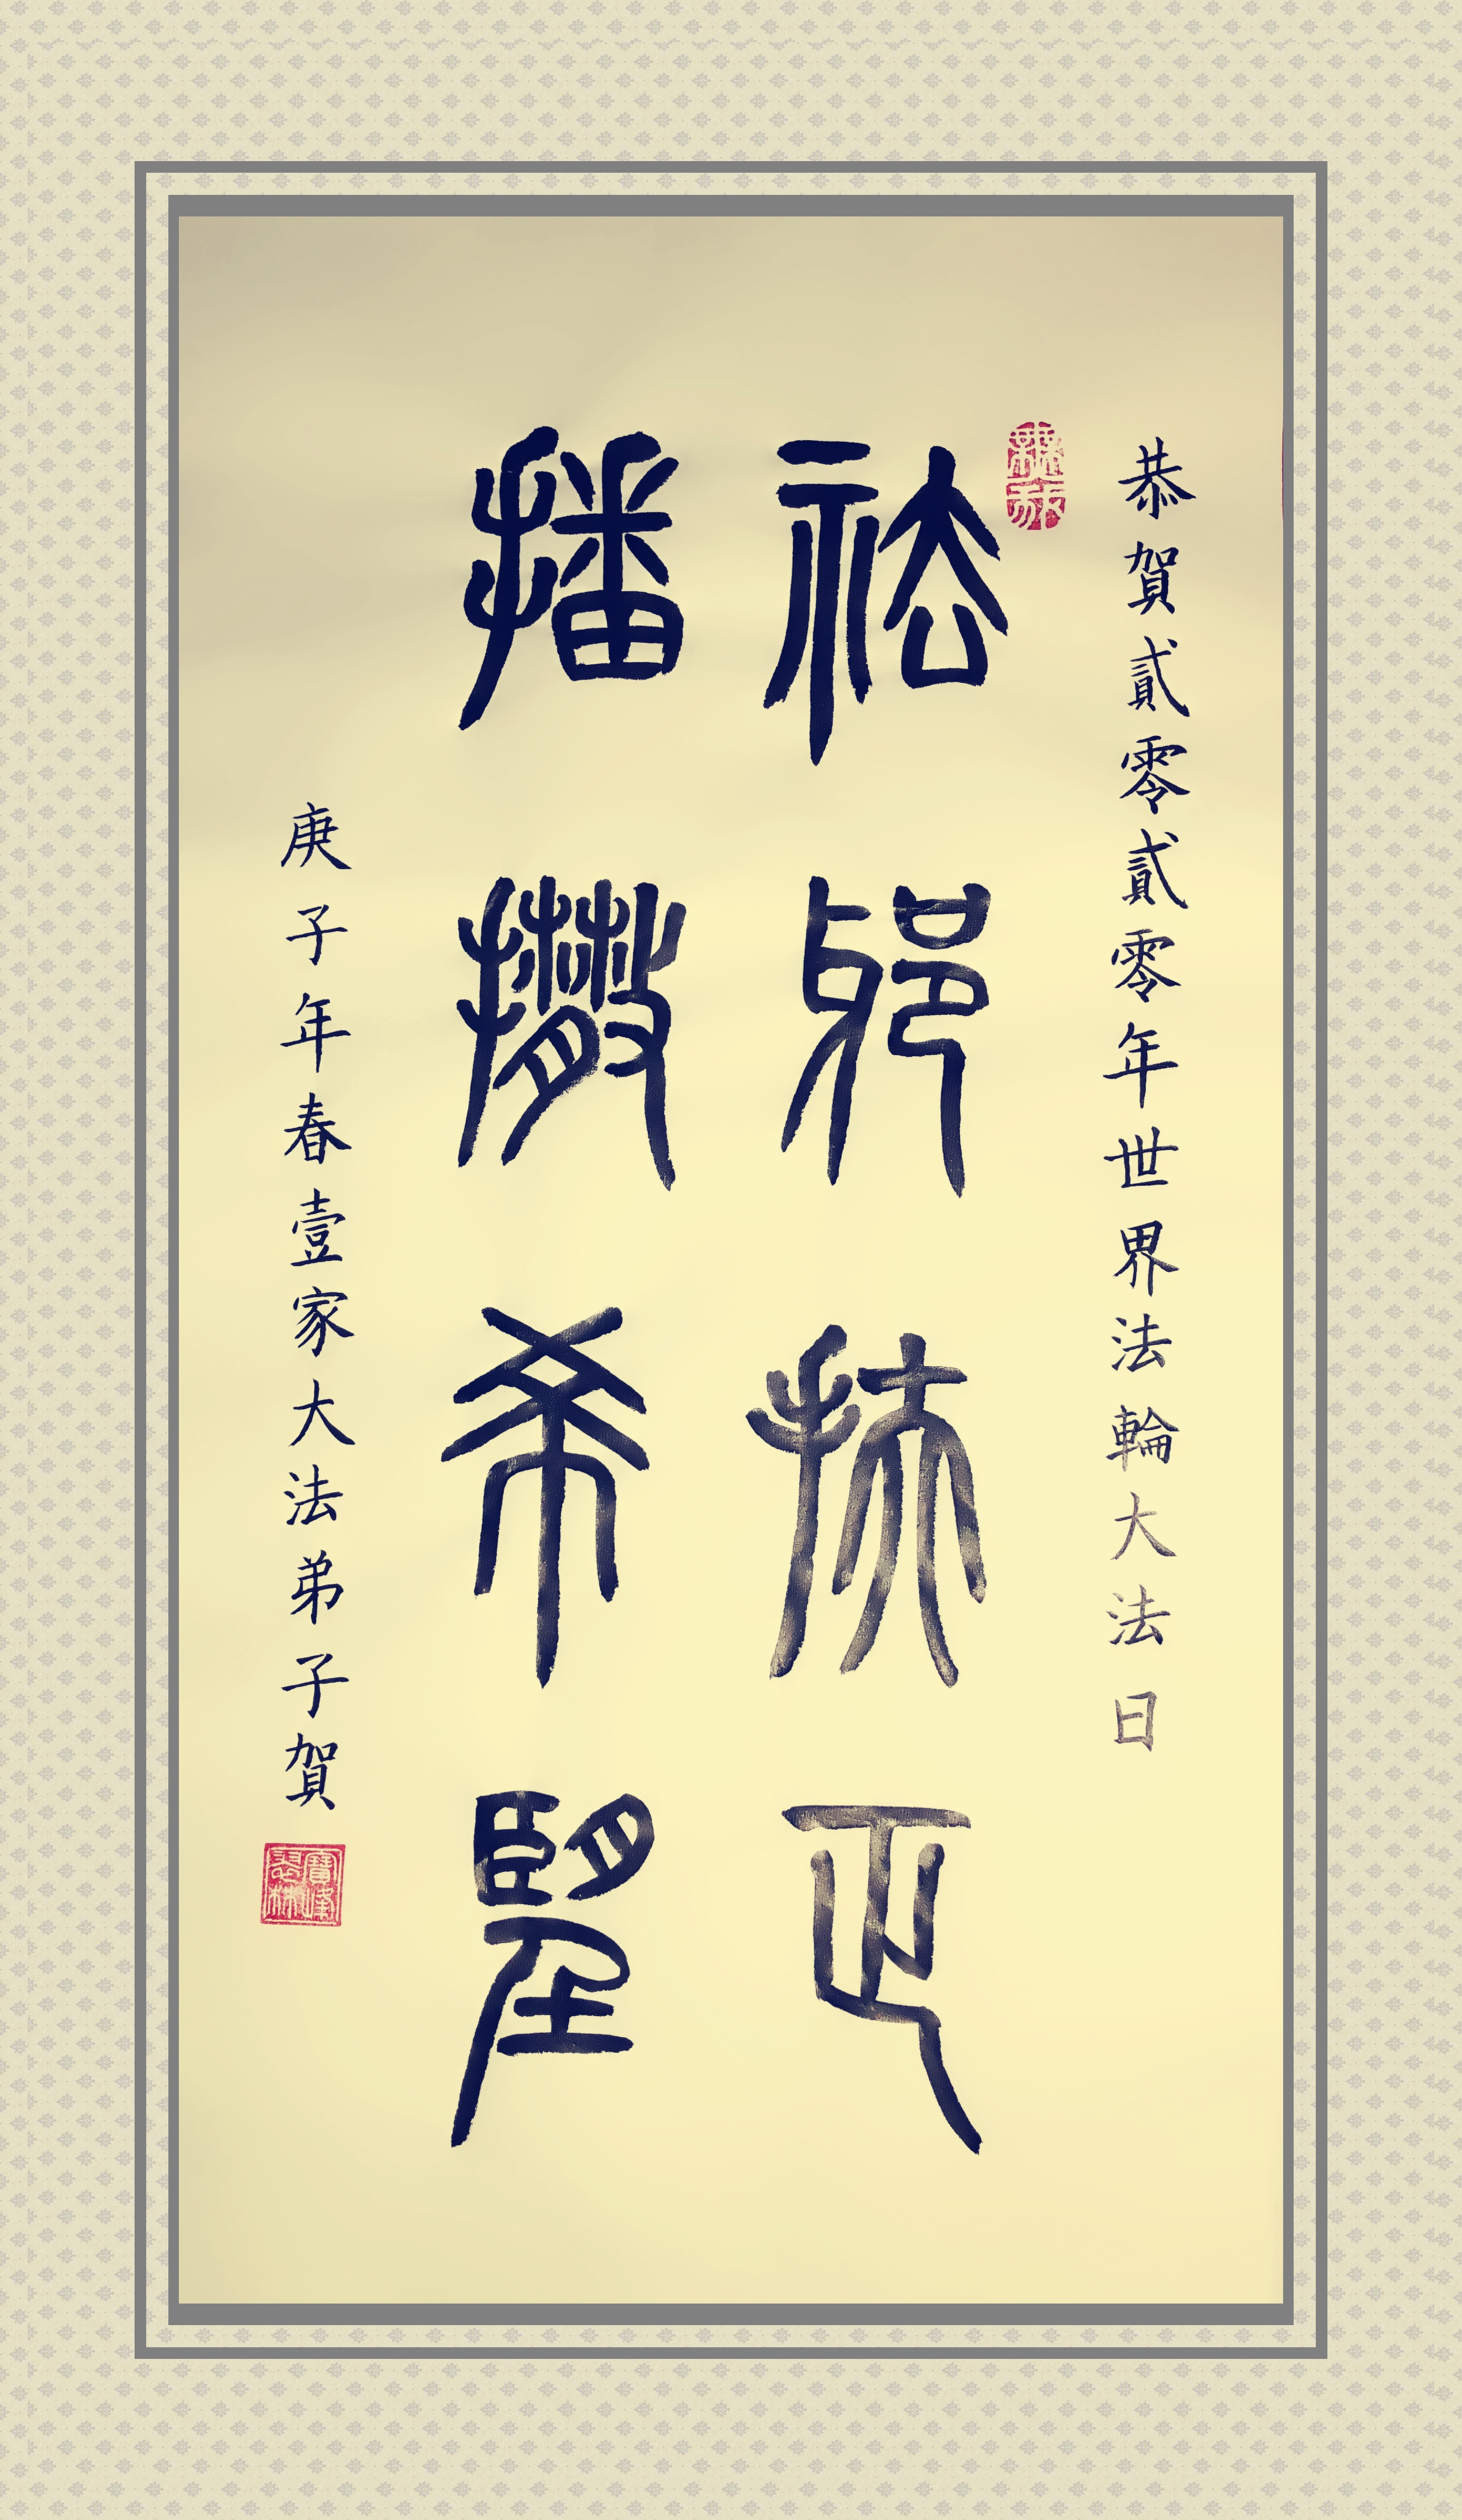 恭賀貳零貳零年世界法輪大法日
祛邪扶正
播撒希望
庚子年春壹家大法弟子賀